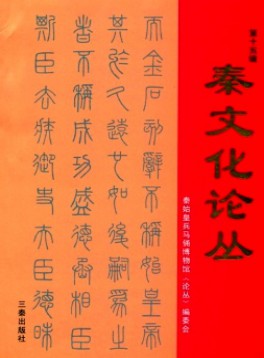 秦文化论丛
秦始皇兵马俑博物馆《论丛》编委会
而金石刻辭不稱始皇帝
其於久遠也如後嗣爲之
者不稱成功盛德丞相臣
斯臣去疾御史夫臣德昧
三秦出版社